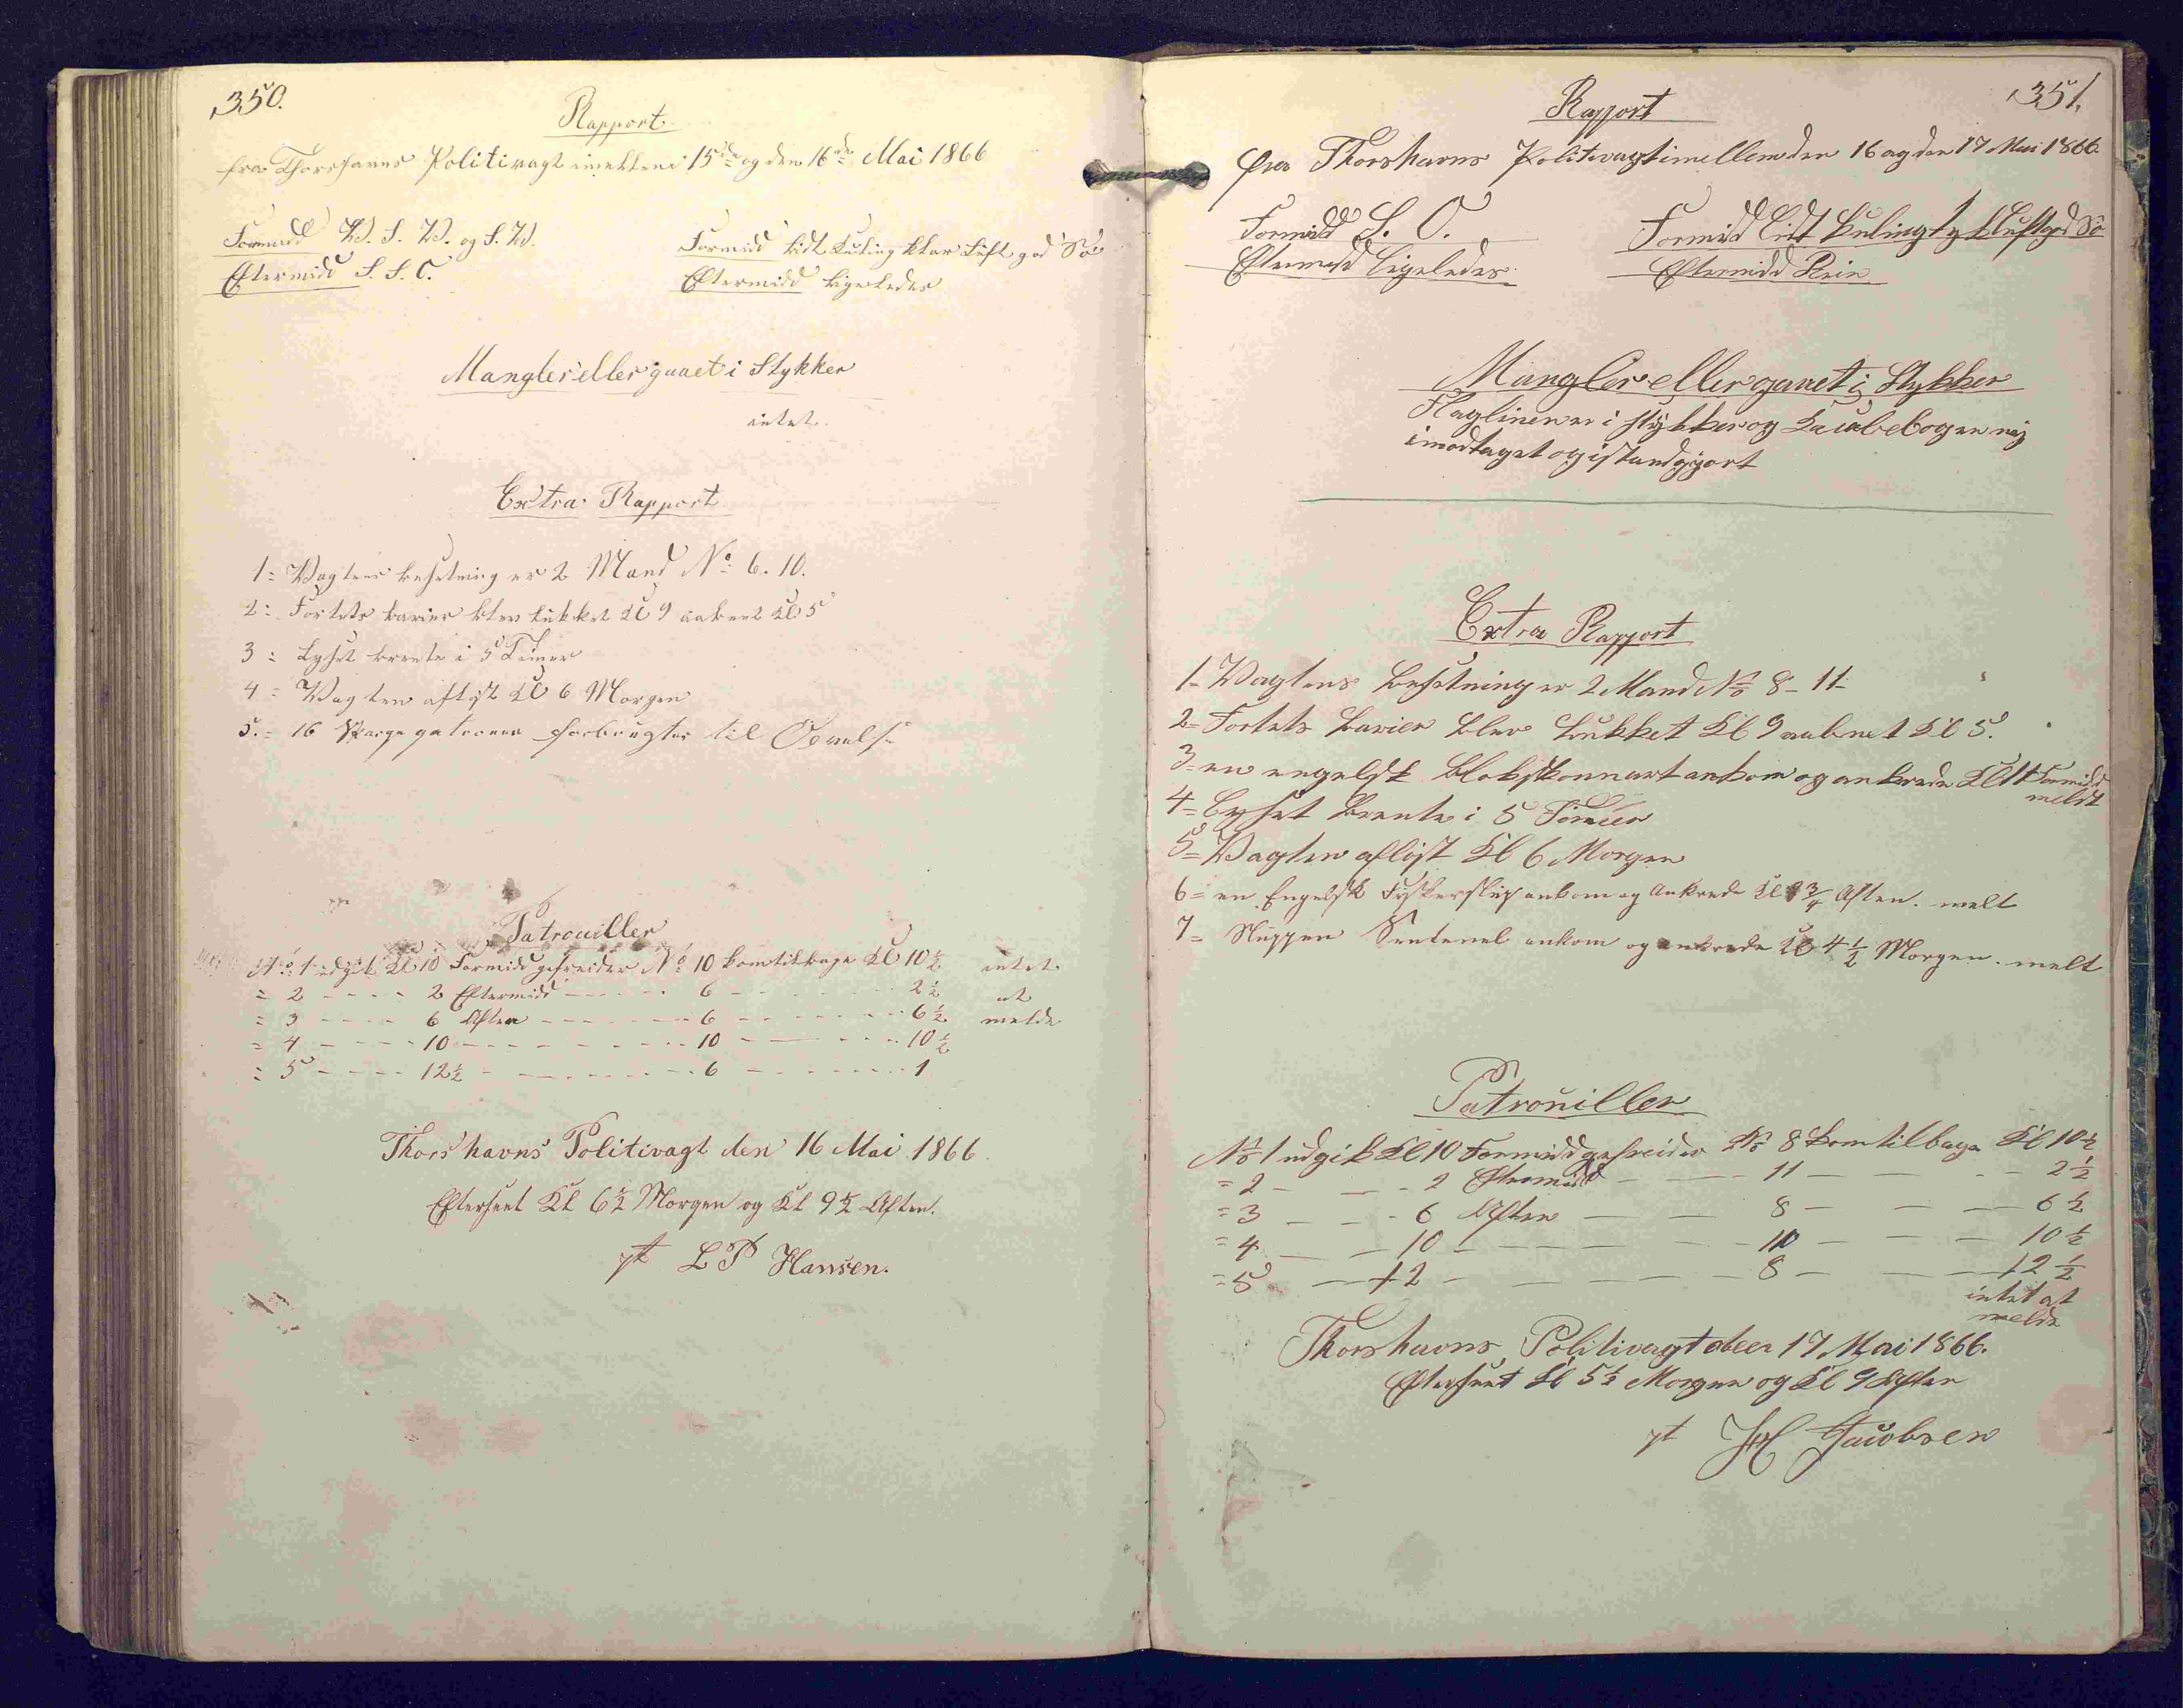 350.
Rapport
fra Thorshavns Politivagt imellem 15de og den 16de Mai 1866
Formidd V. S. V. og S. V.
Eftermidd S. S. O.
Formidd lidt Kuling klar Luft god Sø
Eftermidd ligeledes
Mangler eller gaaet i Stykker
intet.
Extra Rapport
1= Vagtens besetning er 2 Mand No 6. 10.
2= Fortets barier blev lukket Kl 9 aabnet Kl 5
3= Lyset brente i 5 Timer
4= Vagten afløst Kl 6 Morgen
5.= 16 patroner forbrugtes til Øvelse
Patrouiller
No 1 udgik Kl 10 Formidd gefreider No 10 kom tilbage Kl 10½ intet
= 2 - - - - 2 Eftermidd - - - - 6 - - - - 2½ at
= 3 - - - - 6 Aften - - - - 6 - - - - 6½ melde
= 4 - - - - 10 - - - - 10 - - - - 10½
= 5 - - - - 12½ - - - - 6 - - - - 1
Thorshavns Politivagt den 16 Mai 1866.
Efterseet Kl 6½ Morgen og Kl 9½ Aften.
pt L P Hansen.
351.
Rapport
fra Thorshavns Politivagt imellem den 16 og den 17 Mai 1866.
Formidd S. O.
Eftermidd ligeledes
Formidd lidt Kuling tyk Luft god Sø
Eftermidd Rein
Mangler eller gaaet i Stykker
Flaglinen er i stykker og
imodtaget og istandgjort
Extra Rapport
1= Vagtens besetning er 2 Mand No 8 - 11-
2= Fortets barier blev lukket Kl 9 aabnet Kl 5.
3= en engelsk skonnart ankom og ankrede Kl 11 Formidd
meldt
4= Lyset brente i 5 Timer
5= Vagten afløst Kl 6 Morgen
6= en Engelsk Fiskerslup ankom og ankrede Kl 8¾ Aften. melt
7= Sluppen Sentenel ankom og ankrede Kl 4½ Morgen. melt
Patrouiller
No 1 udgik Kl 10 Formidd gefreider No 8 kom tilbage Kl 10½
= 2 - - - 2 Eftermidd - - - 11 - - 2½
= 3 - - - 6 Aften - - - 8 - - - 6½
= 4 - - 10 - - - - 11 - - - 10½
= 5 - - 12 - - - - 8 - - - 12½
intet at
melde
Thorshavns Politivagt den 17 Mai 1866.
Efterseet Kl 5½ Morgen og Kl 9 Aften
pt JH Jacobsen